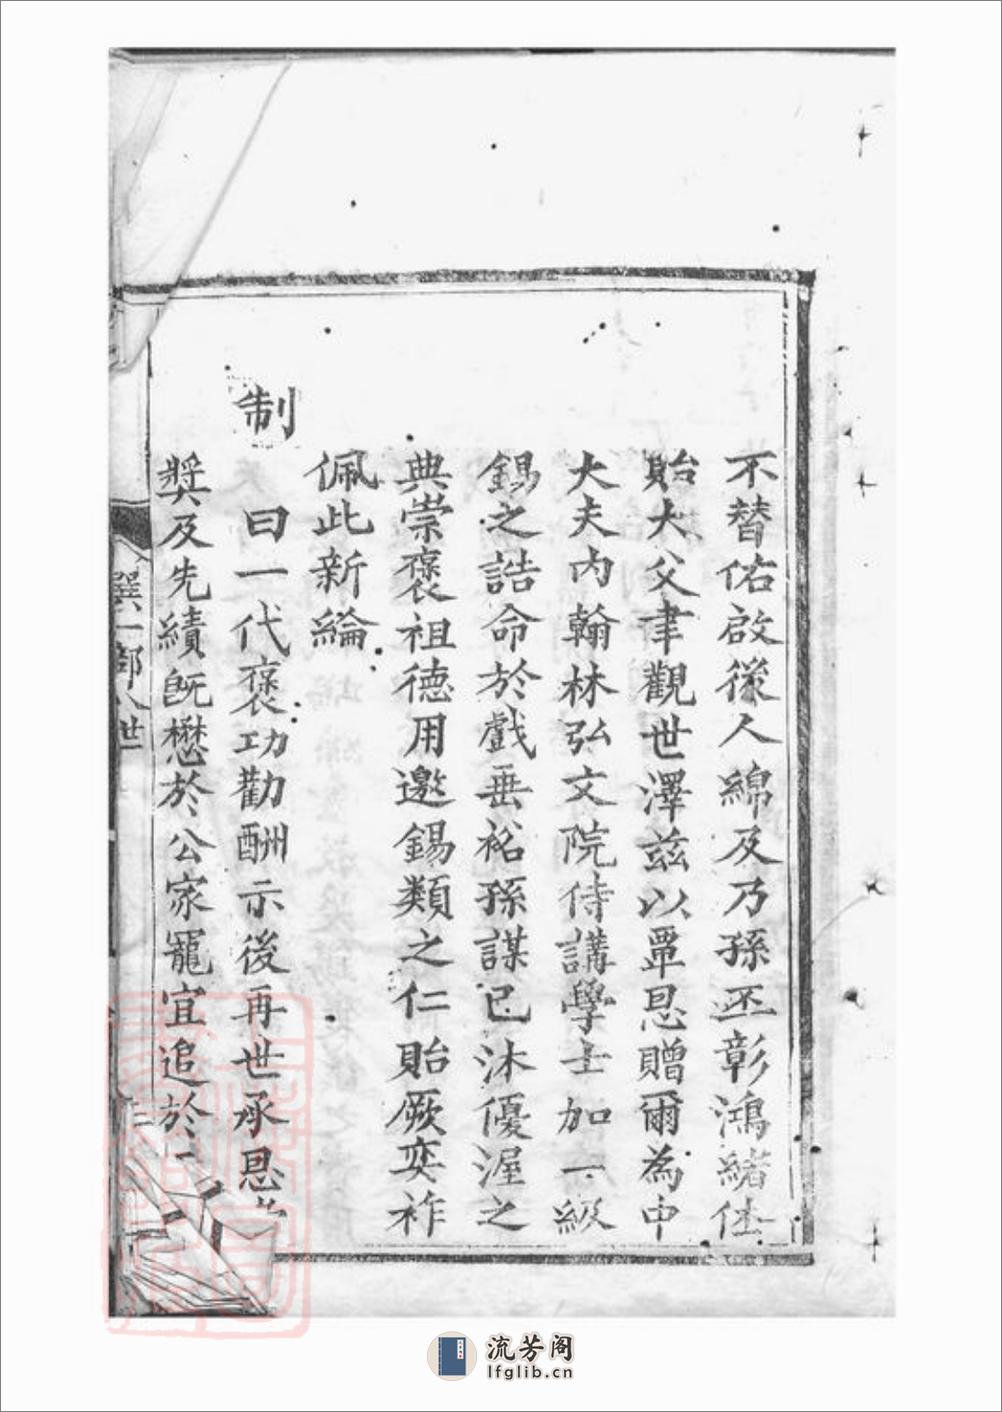 不替佑啟後人綿及乃孫丕彰鴻緒仕
貽大父聿觀世澤茲以覃恩贈爾為中
大夫內翰林弘文院侍講學士加一級
錫之誥命於戲垂裕孫謀已沐優渥之
典崇褒祖德用邀錫類之仁貽厥奕祚
佩此新綸
制曰一代褒功勸酬示後再世承恩
奬及先績旣懋於公家寵宜追於
流芳阁
lfglib.cn